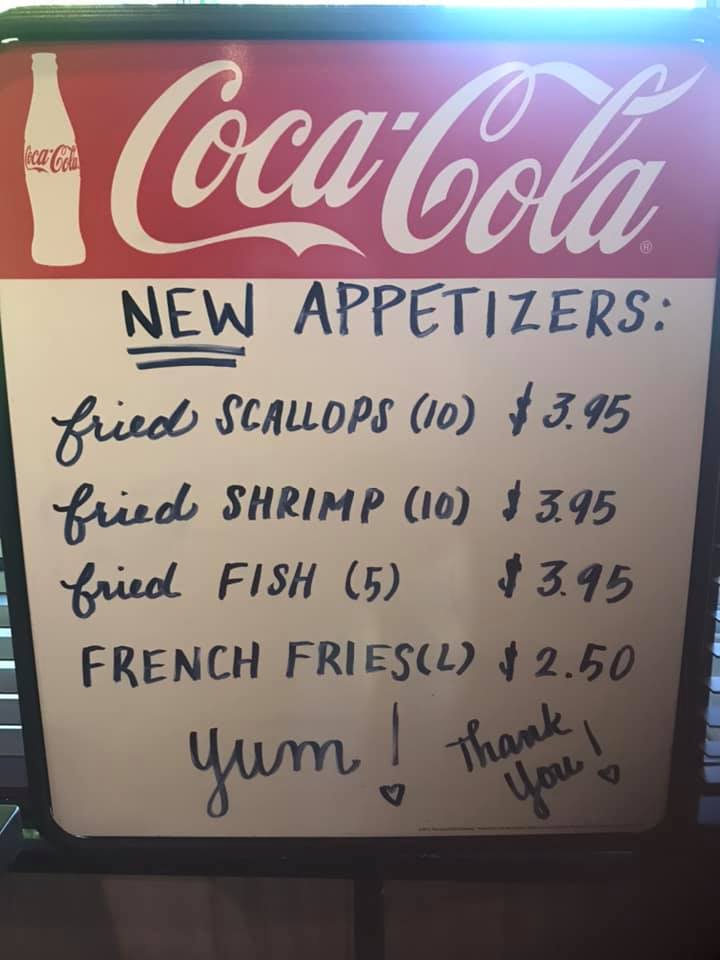 Coca-Cola
Coca-Cola®
NEW APPETIZERS:
fried SCALLOPS (10) $3.95
fried SHRIMP (10) $3.95
fried FISH (5) $3.95
FRENCH FRIES(L) $2.50
yum!
Thank
You!